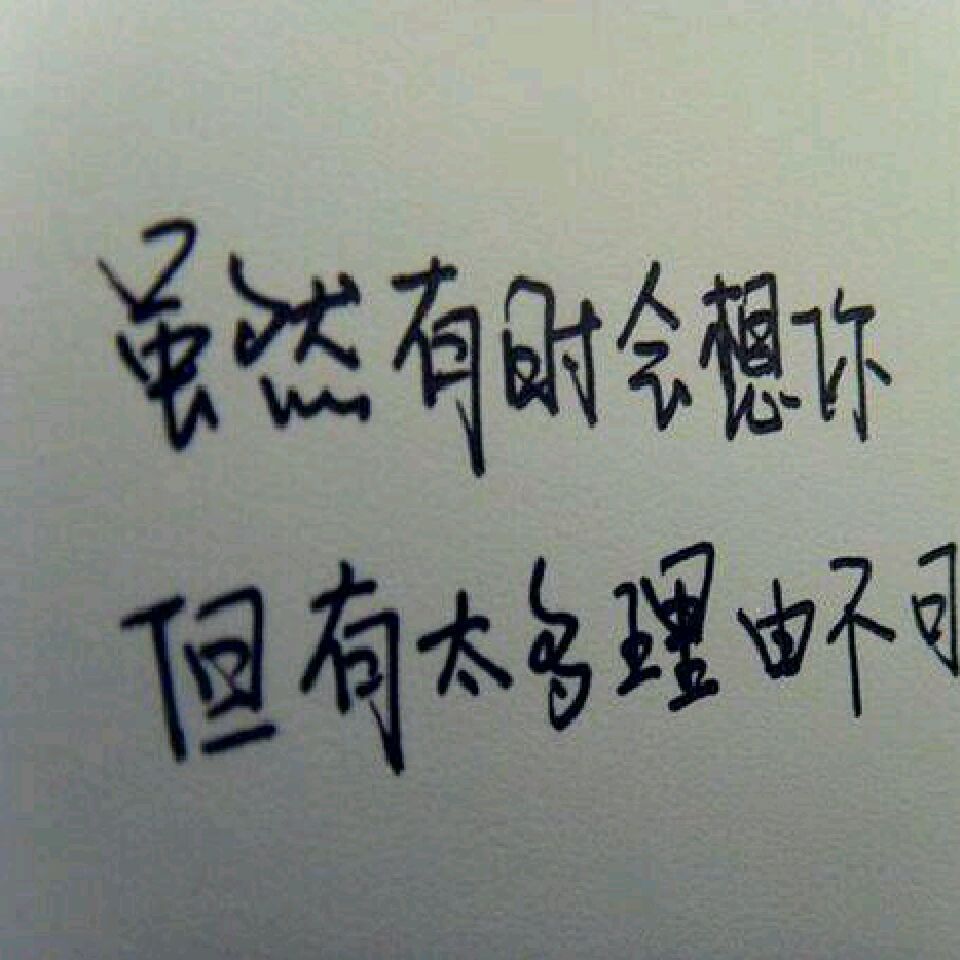 虽然有时会想你
但有太多理由不